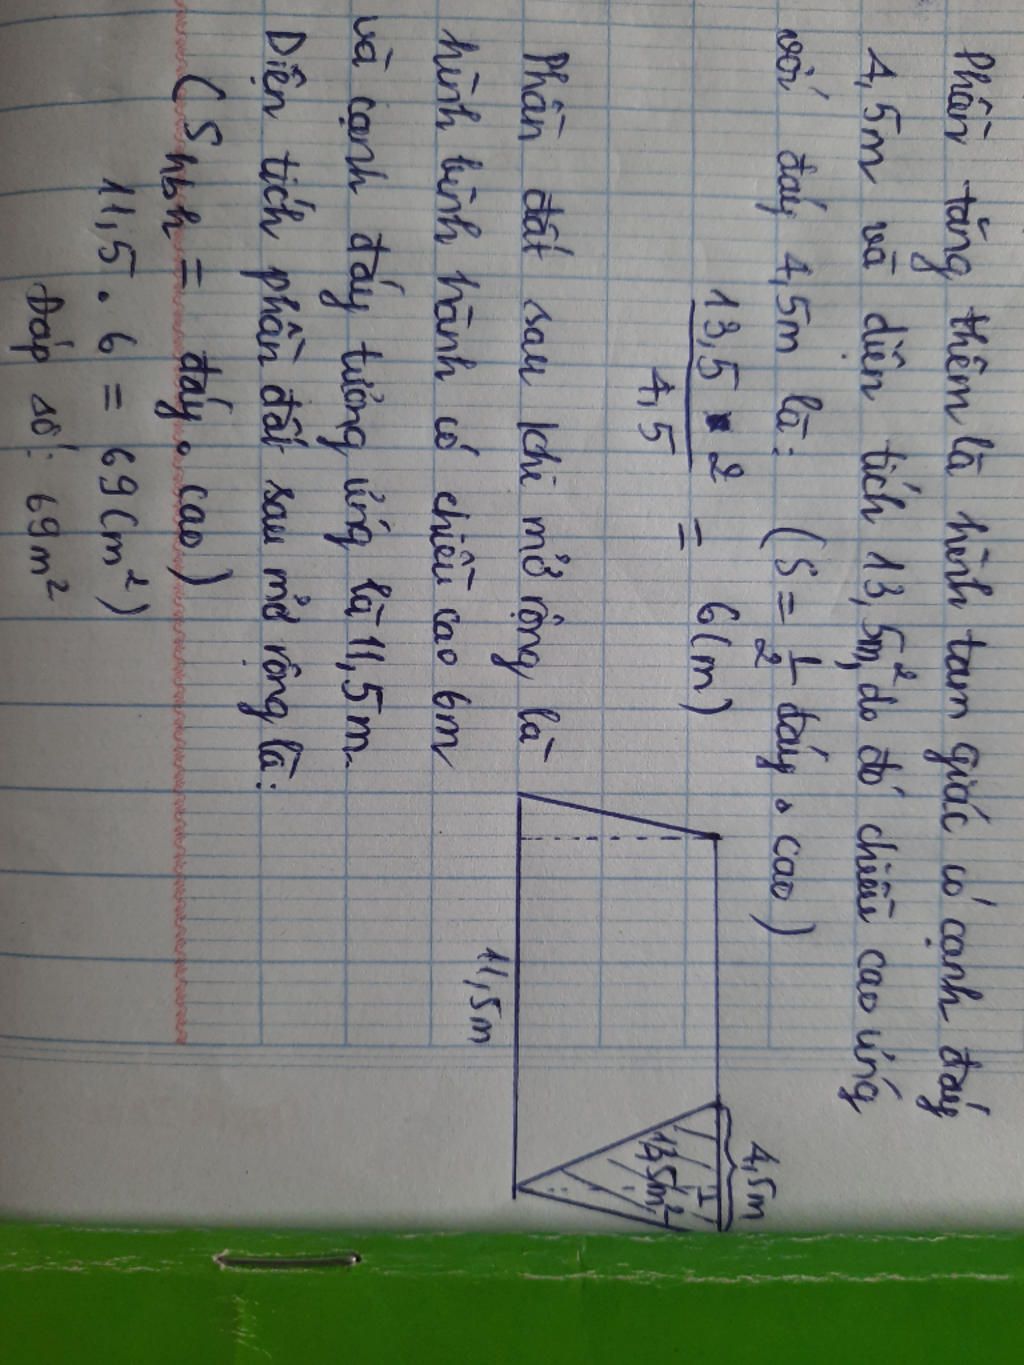 Phần tăng thêm là hình tam giác có cạnh đáy
4,5m và diện tích 13,5m², do đó chiều cao ứng
với đáy 4,5m là: (S = 1/2 đáy . cao)
13,5 . 2 / 4,5 = 6(m)
Phần đất sau khi mở rộng là
hình bình hành có chiều cao 6m
và cạnh đáy tương ứng là 11,5m.
Diện tích phần đất sau mở rộng là:
(Shbh = đáy . cao)
11,5 . 6 = 69(m²)
Đáp số: 69m²
4,5m
13,5m²
11,5m